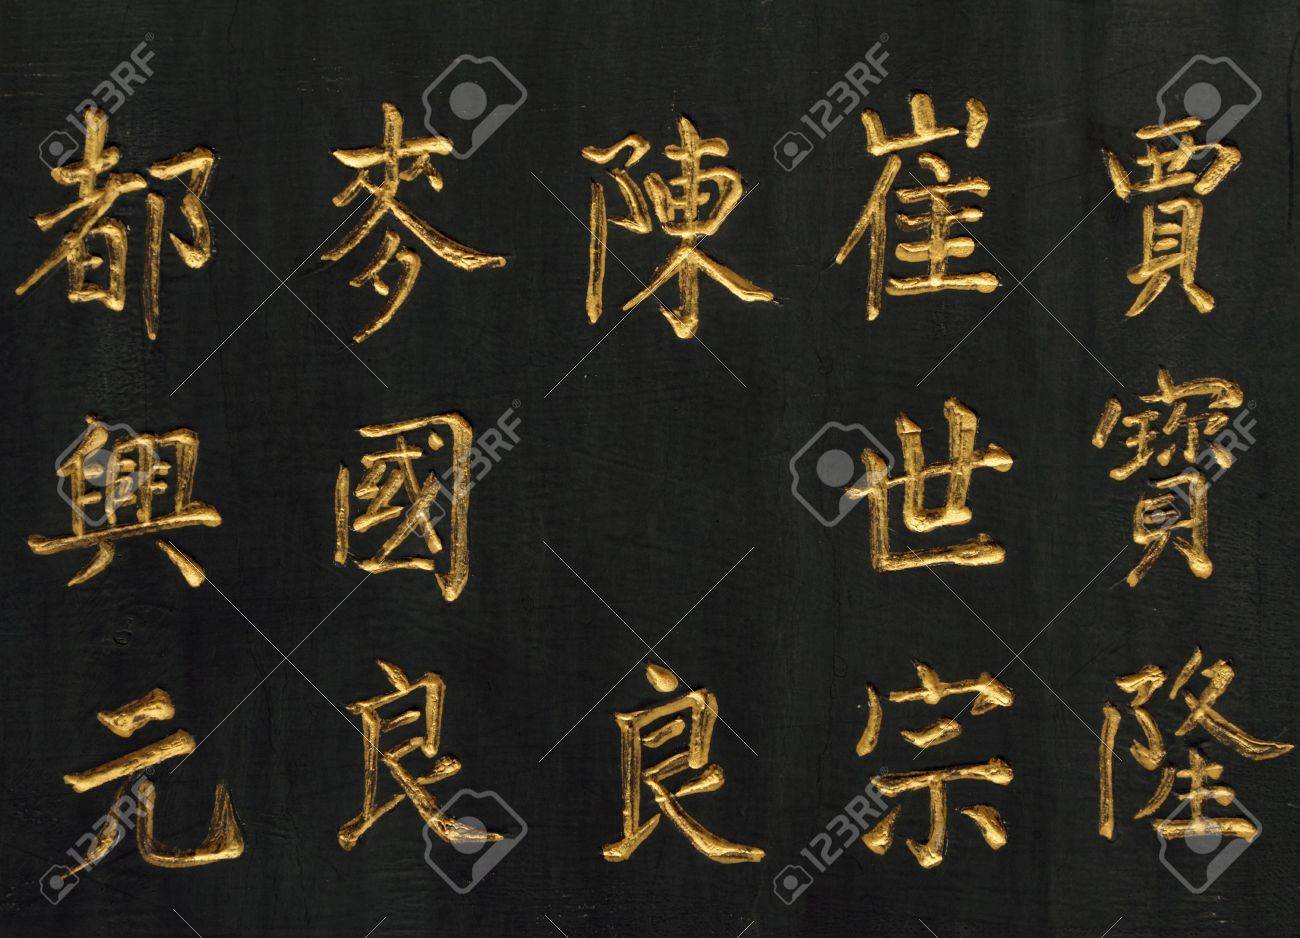 賈寶隆
崔世宗
陳良
麥國良
都興元
123RF
123RF
123RF
123RF
123RF
123RF